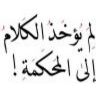 لم يؤخذ الكلام
إلى المحكمة !